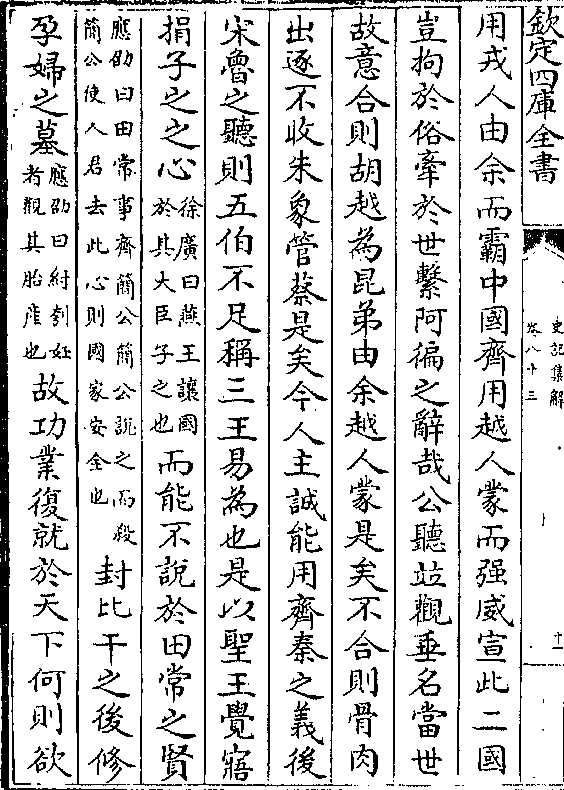 欽定四庫全書
史記集解
卷八十三
十一
用戎人由余而霸中國齊用越人蒙而强威宣此二國
豈拘於俗牽於世繫阿偏之辭哉公聽竝觀垂名當世
故意合則胡越為昆弟由余越人蒙是矣不合則骨肉
出逐不收朱象管蔡是矣今人主誠能用齊秦之義後
宋魯之聽則五伯不足稱三王易為也是以聖王覺寤
捐子之之心徐廣曰燕王讓國於其大臣子之也而能不説於田常之賢
應劭曰田常事齊簡公簡公説之而殺簡公使人君去此心則國家安全也封比干之後修
孕婦之墓應劭曰紂刳妊者觀其胎産也故功業復就於天下何則欲